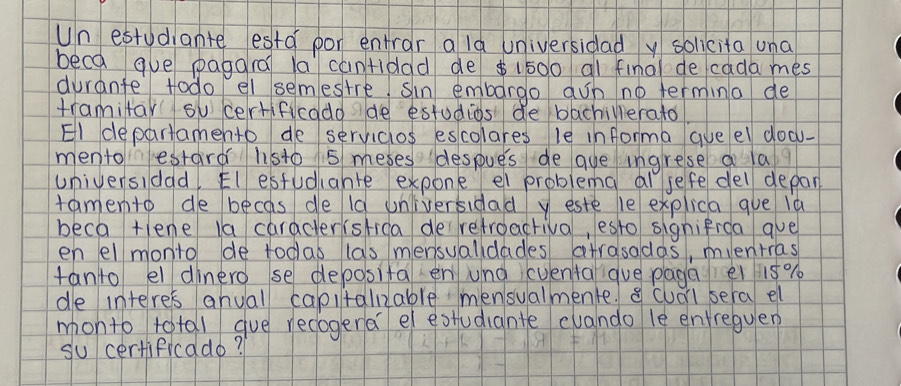 Un estudiante está por entrar a la universidad y solicita una
beca que pagará la cantidad de $1500 al final de cada mes
durante todo el semestre. Sin embargo aún no termina de
tramitar su certificado de estudios de bachillerato.
El departamento de servicios escolares le informa que el docu-
mento estará listo 5 meses después de que ingrese a la
universidad. El estudiante expone el problema al jefe del depar
tamento de becas de la universidad y este le explica que la
beca tiene la característica de retroactiva, esto significa que
en el monto de todas las mensualidades atrasadas, mientras
tanto el dinero se deposita en una cuenta que paga el 15%
de interés anual capitalizable mensualmente. ¿ Cuál sera el
monto total que recogerá el estudiante cuando le entreguen
su certificado?